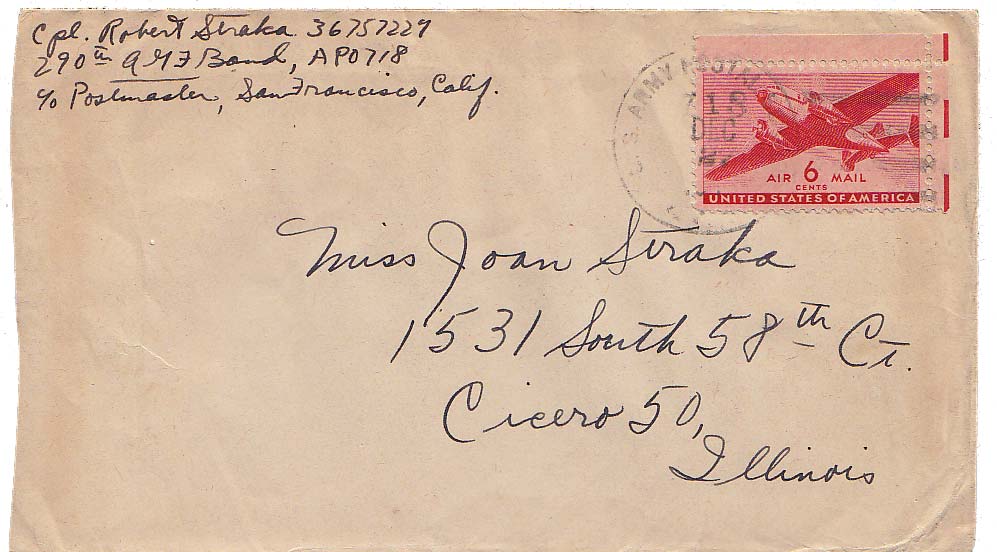 Cpl. Robert Straka 36757229
290th AGF Band, APO 718
c/o Postmaster, San Francisco, Calif.
U. S. ARMY POSTAL
DEC
AIR 6 MAIL
CENTS
UNITED STATES OF AMERICA
Miss Joan Straka
1531 South 58th Ct.
Cicero 50,
Illinois